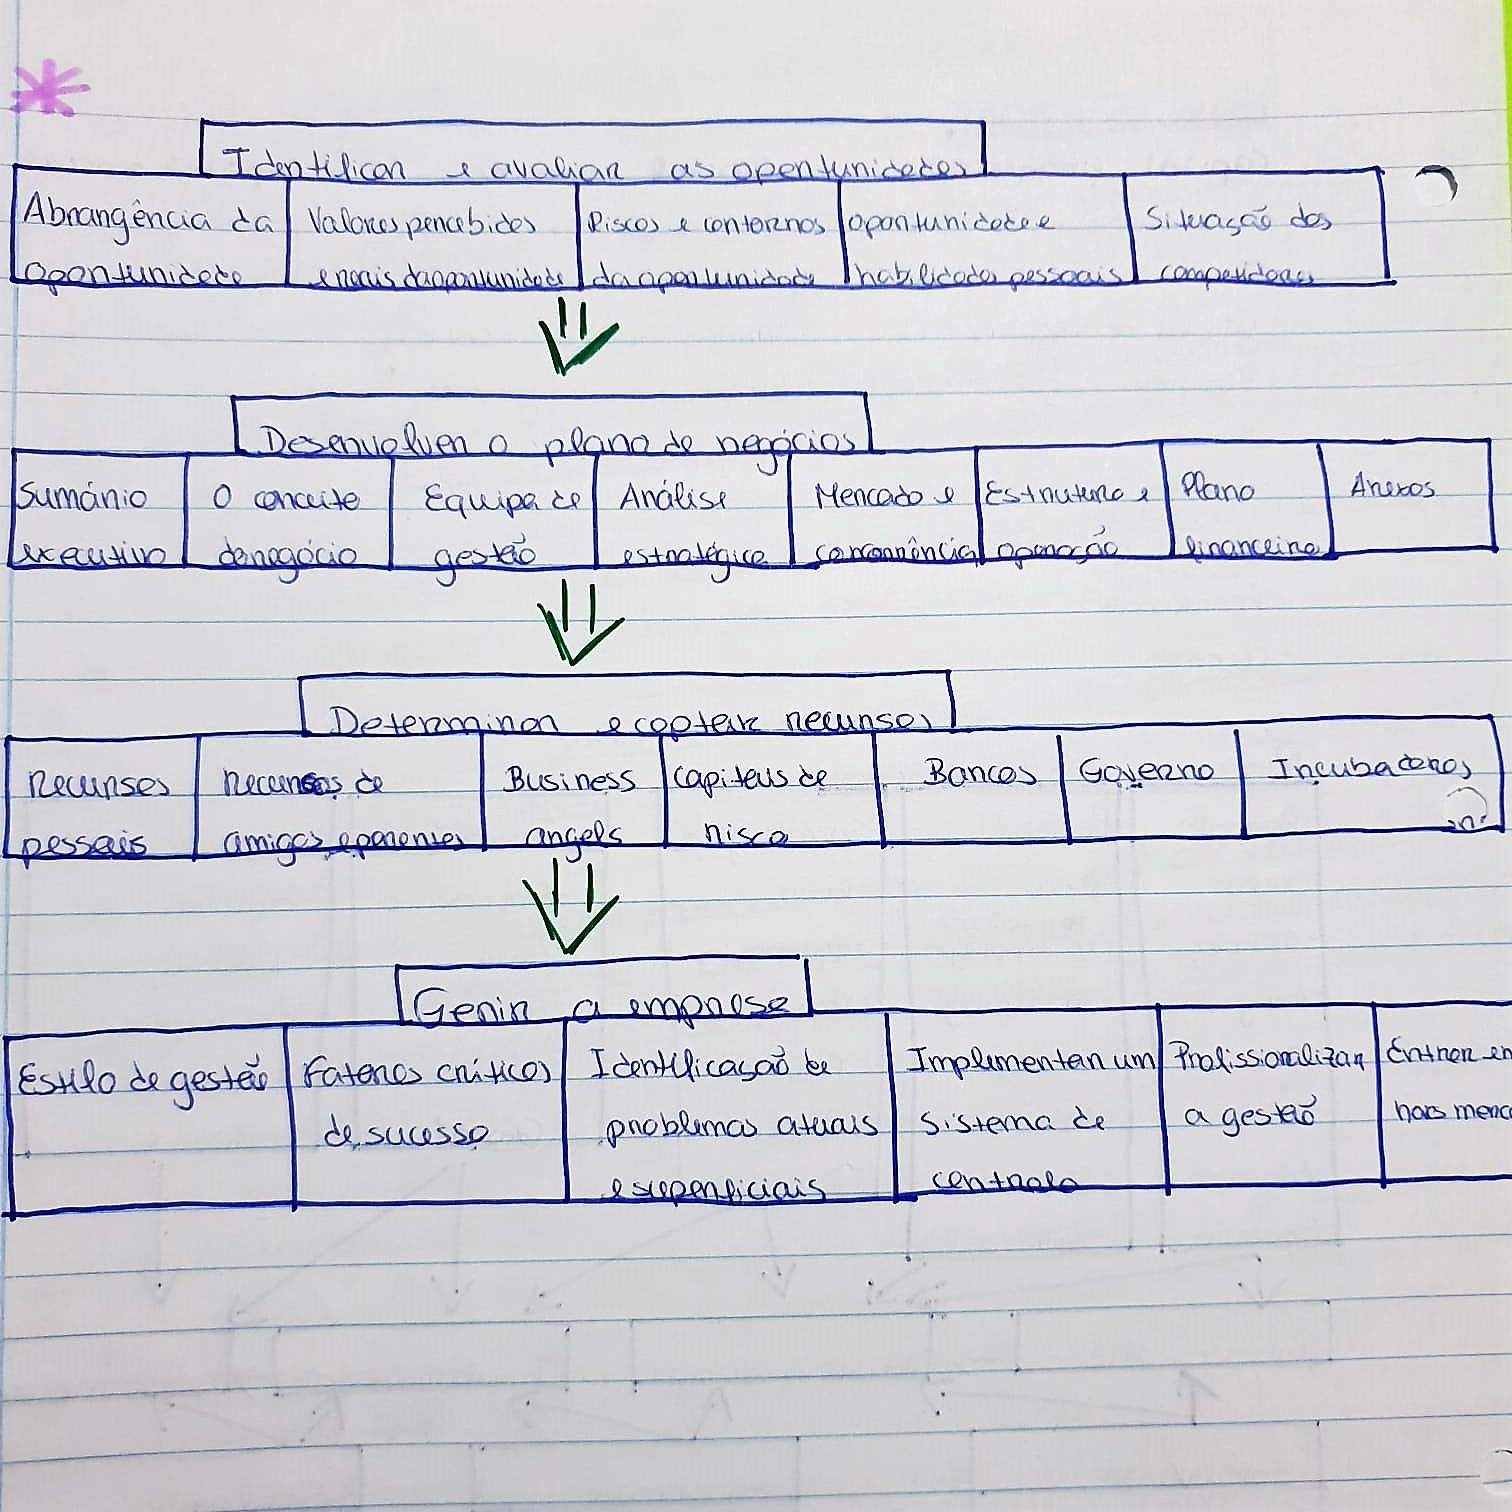 Identificar e avaliar as oportunidades
Abrangência da
oportunidade
Valores percebidos
e reais da oportunidade
Riscos e contornos
da oportunidade
oportunidade e
habilidades pessoais
Situação dos
competidores
Desenvolver o plano de negócios
Sumário
executivo
O conceito
de negócio
Equipa de
gestão
Análise
estratégica
Mercado e
concorrência
Estrutura e
operação
Plano
financeiro
Anexos
Determinar e captar recursos
Recursos
pessoais
Recursos de
amigos e parentes
Business
angels
Capitais de
risco
Bancos
Governo
Incubadoras
Gerir a empresa
Estilo de gestão
Fatores críticos
de sucesso
Identificação de
problemas atuais
e superficiais
Implementar um
sistema de
controlo
Profissionalizar
a gestão
Entrar en